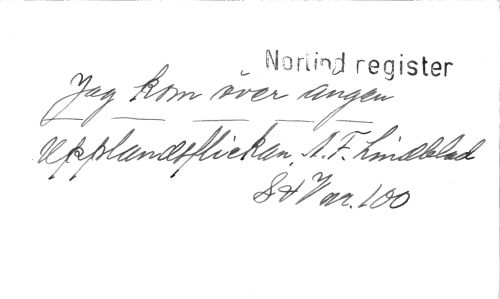 Norlind register
Jag kom över ängen
Upplandsflickan, A. F. Lindblad
SHV nr. 100